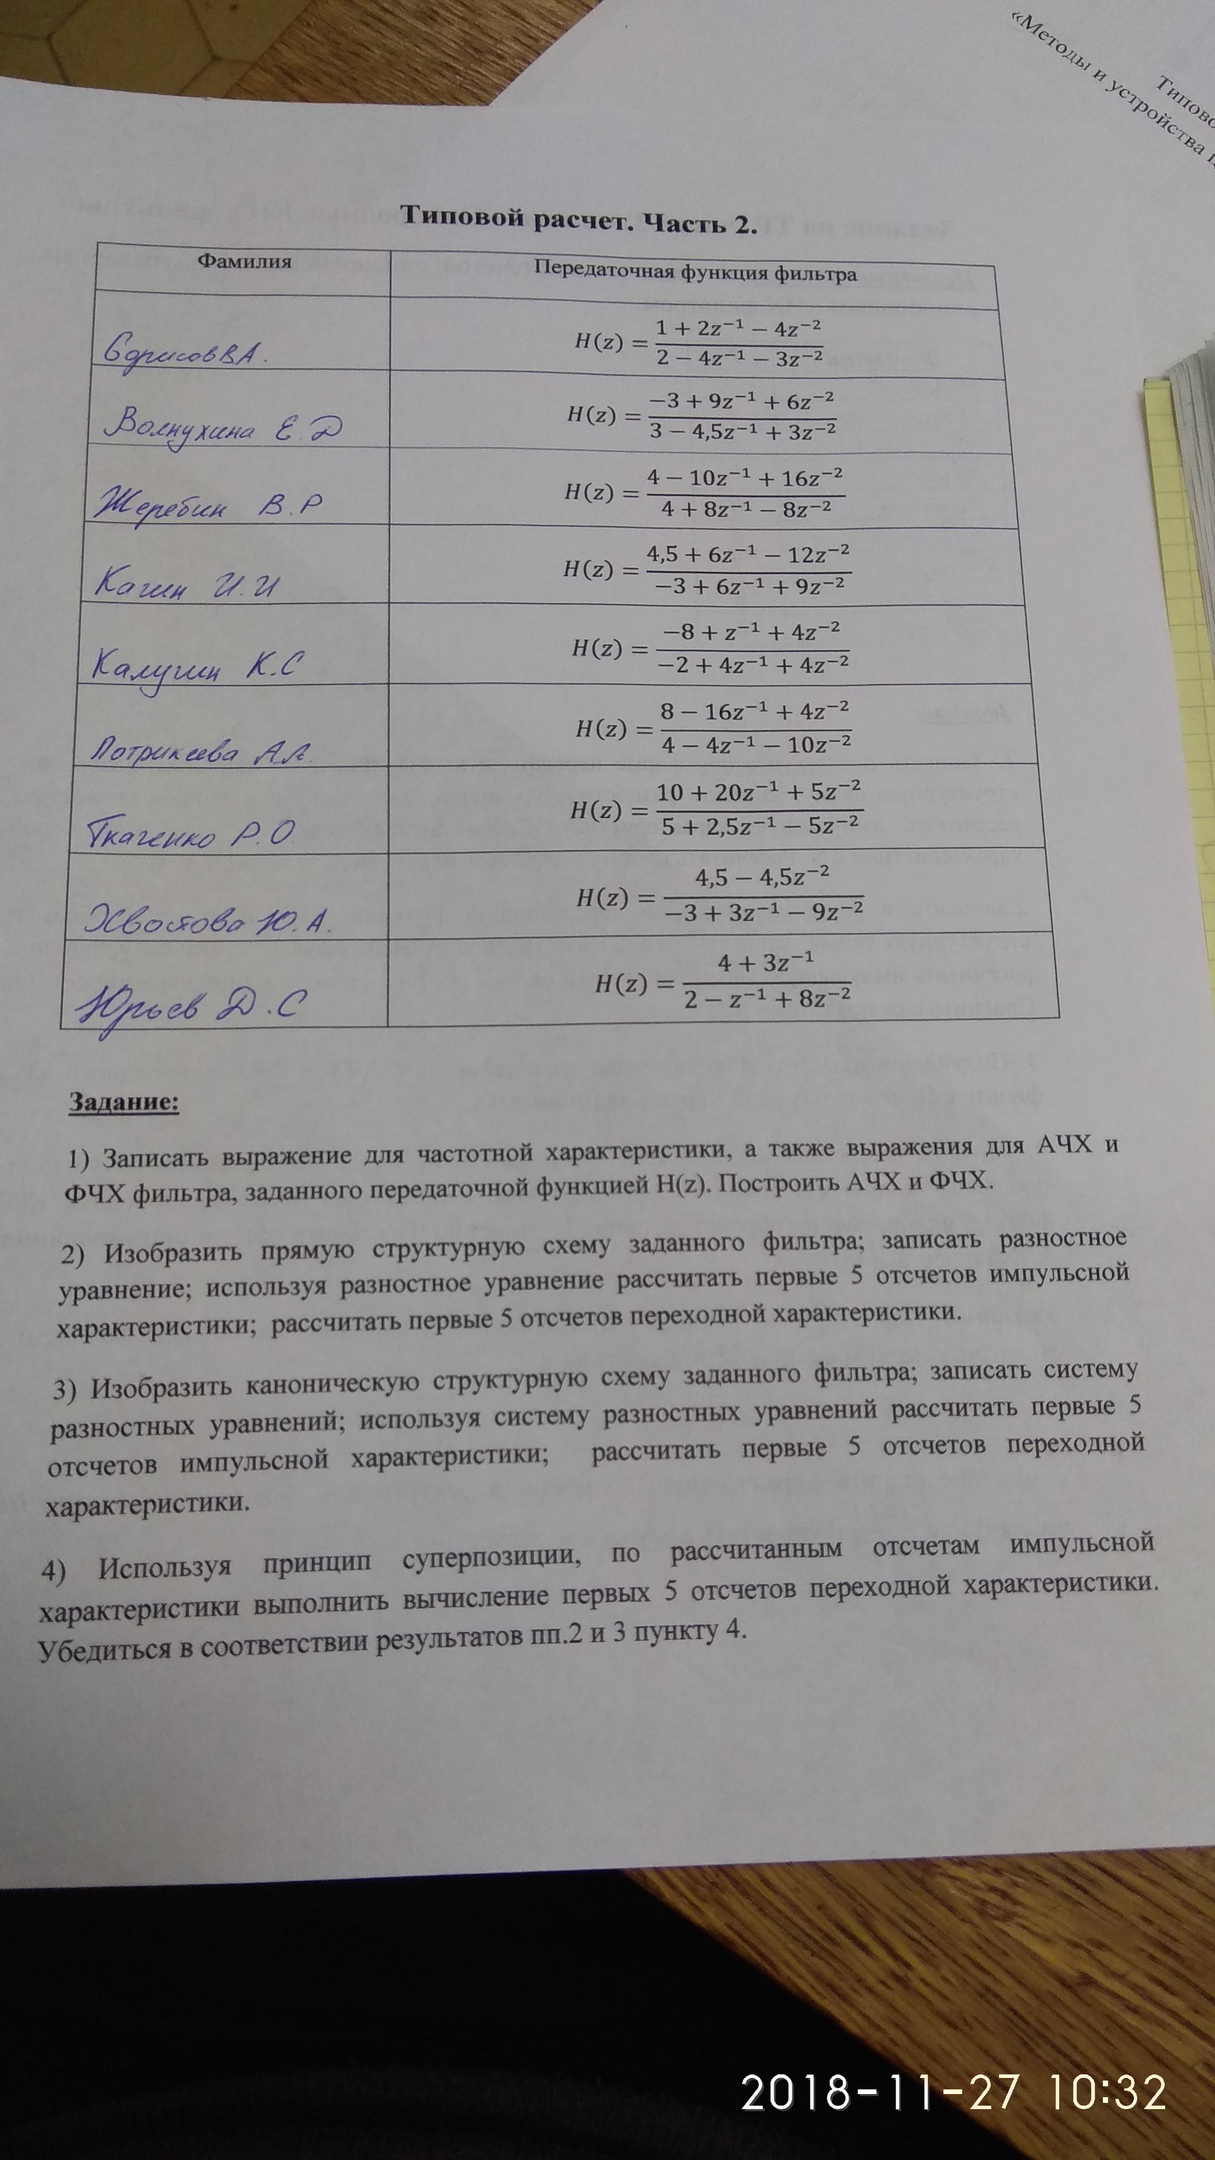 «Методы и устройства
Типовой расчет. Часть 2.
Фамилия
Передаточная функция фильтра
Борисов В.А.
H(z) = (1 + 2z⁻¹ − 4z⁻²)/(2 − 4z⁻¹ − 3z⁻²)
Волнухина Е.Д
H(z) = (−3 + 9z⁻¹ + 6z⁻²)/(3 − 4,5z⁻¹ + 3z⁻²)
Жеребин В.Р
H(z) = (4 − 10z⁻¹ + 16z⁻²)/(4 + 8z⁻¹ − 8z⁻²)
Кагин И.И
H(z) = (4,5 + 6z⁻¹ − 12z⁻²)/(−3 + 6z⁻¹ + 9z⁻²)
Калугин К.С
H(z) = (−8 + z⁻¹ + 4z⁻²)/(−2 + 4z⁻¹ + 4z⁻²)
Потрикеева А.А.
H(z) = (8 − 16z⁻¹ + 4z⁻²)/(4 − 4z⁻¹ − 10z⁻²)
Ткаченко Р.О
H(z) = (10 + 20z⁻¹ + 5z⁻²)/(5 + 2,5z⁻¹ − 5z⁻²)
Хвостова Ю.А.
H(z) = (4,5 − 4,5z⁻²)/(−3 + 3z⁻¹ − 9z⁻²)
Юрьев Д.С
H(z) = (4 + 3z⁻¹)/(2 − z⁻¹ + 8z⁻²)
Задание:
1) Записать выражение для частотной характеристики, а также выражения для АЧХ и
ФЧХ фильтра, заданного передаточной функцией H(z). Построить АЧХ и ФЧХ.
2) Изобразить прямую структурную схему заданного фильтра; записать разностное
уравнение; используя разностное уравнение рассчитать первые 5 отсчетов импульсной
характеристики; рассчитать первые 5 отсчетов переходной характеристики.
3) Изобразить каноническую структурную схему заданного фильтра; записать систему
разностных уравнений; используя систему разностных уравнений рассчитать первые 5
отсчетов импульсной характеристики; рассчитать первые 5 отсчетов переходной
характеристики.
4) Используя принцип суперпозиции, по рассчитанным отсчетам импульсной
характеристики выполнить вычисление первых 5 отсчетов переходной характеристики.
Убедиться в соответствии результатов пп.2 и 3 пункту 4.
2018-11-27 10:32